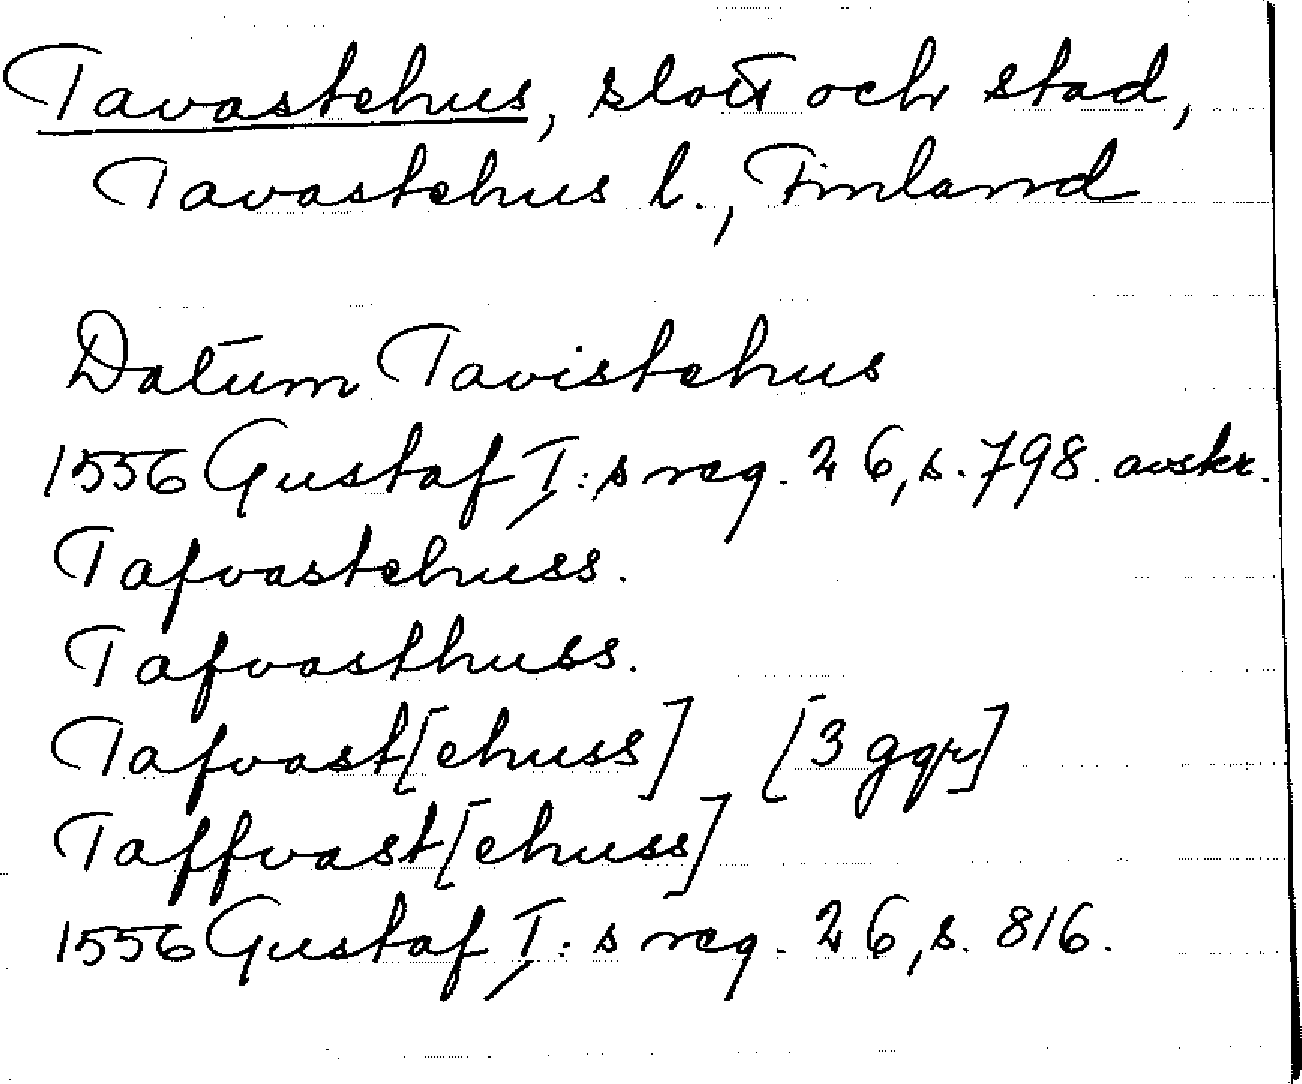 Tavastehus, slott och stad,
Tavastehus l., Finland
Datum Tavistehus
1556 Gustaf I:s reg. 26, s. 798. avskr.
Tafvastehuss.
Tafvasthuss.
Tafvast[ehuss] [3 ggr]
Taffvast[ehuss]
1556 Gustaf I:s reg. 26, s. 816.